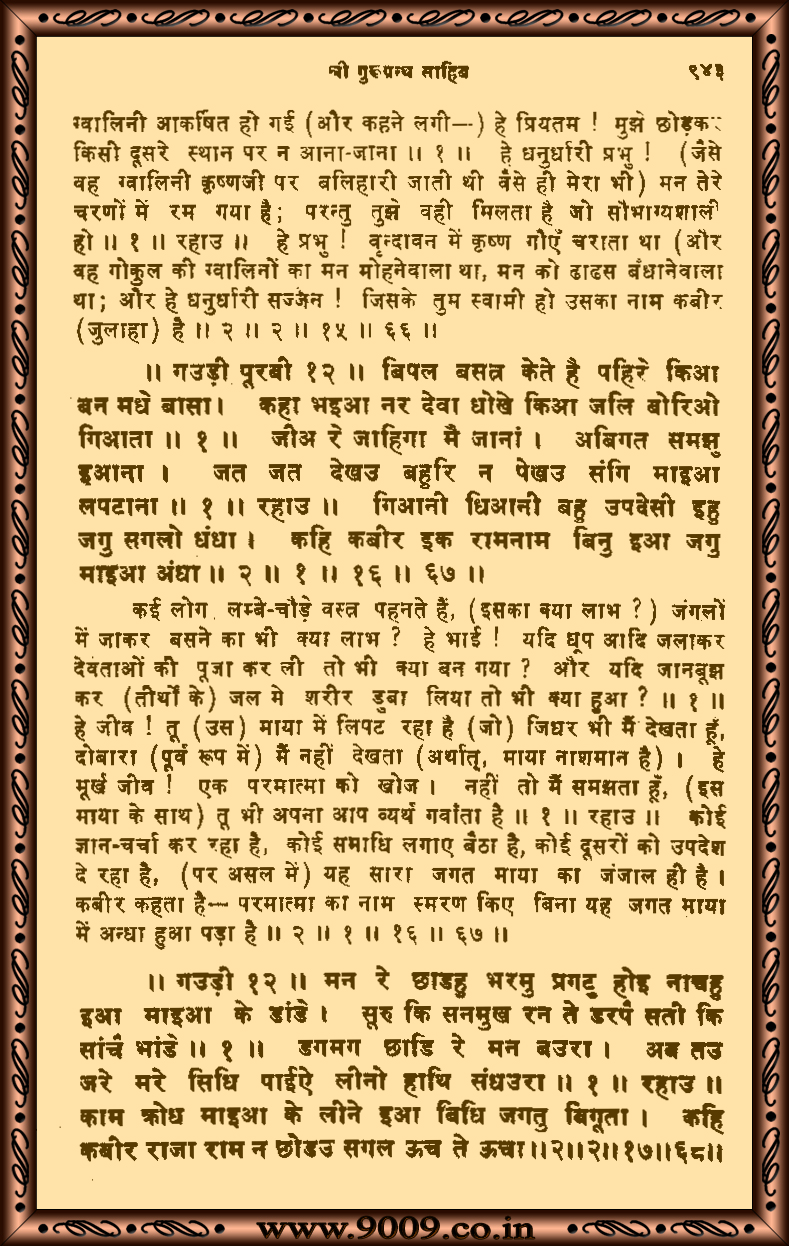 श्री गुरूग्रन्थ साहिब ९४३
ग्वालिनी आकर्षित हो गई (और कहने लगी—) हे प्रियतम ! मुझे छोड़कर
किसी दूसरे स्थान पर न आना-जाना ।। १ ।। हे धनुर्धारी प्रभु ! (जैसे
वह ग्वालिनी कृष्णजी पर बलिहारी जाती थी वैसे ही मेरा भी) मन तेरे
चरणों में रम गया है; परन्तु तुझे वही मिलता है जो सौभाग्यशाली
हो ।। १ ।। रहाउ ।। हे प्रभु ! वृन्दावन में कृष्ण गौएँ चराता था (और
वह गोकुल की ग्वालिनों का मन मोहनेवाला था, मन को ढाढस बँधानेवाला
था; और हे धनुर्धारी सज्जन ! जिसके तुम स्वामी हो उसका नाम कबीर
(जुलाहा) है ।। २ ।। २ ।। १५ ।। ६६ ।।
।। गउड़ी पूरबी १२ ।। बिपल बसत्र केते है पहिरे किआ
बन मधे बासा। कहा भइआ नर देवा धोखे किआ जलि बोरिओ
गिआता ।। १ ।। जीअ रे जाहिगा मै जानां । अबिगत समझु
इआना । जत जत देखउ बहुरि न पेखउ संगि माइआ
लपटाना ।। १ ।। रहाउ ।। गिआनी धिआनी बहु उपदेसी इहु
जगु सगलो धंधा । कहि कबीर इक रामनाम बिनु इआ जगु
माइआ अंधा ।। २ ।। १ ।। १६ ।। ६७ ।।
कई लोग लम्बे-चौड़े वस्त्र पहनते हैं, (इसका क्या लाभ ?) जंगलों
में जाकर बसने का भी क्या लाभ ? हे भाई ! यदि धूप आदि जलाकर
देवताओं की पूजा कर ली तो भी क्या बन गया ? और यदि जानबूझ
कर (तीर्थों के) जल मे शरीर डुबा लिया तो भी क्या हुआ ? ।। १ ।।
हे जीव ! तू (उस) माया में लिपट रहा है (जो) जिधर भी मैं देखता हूँ,
दोबारा (पूर्व रूप में) मैं नहीं देखता (अर्थात्, माया नाशमान है) । हे
मूर्ख जीव ! एक परमात्मा को खोज । नहीं तो मैं समझता हूँ, (इस
माया के साथ) तू भी अपना आप व्यर्थ गवांता है ।। १ ।। रहाउ ।। कोई
ज्ञान-चर्चा कर रहा है, कोई समाधि लगाए बैठा है, कोई दूसरों को उपदेश
दे रहा है, (पर असल में) यह सारा जगत माया का जंजाल ही है ।
कबीर कहता है— परमात्मा का नाम स्मरण किए बिना यह जगत माया
में अन्धा हुआ पड़ा है ।। २ ।। १ ।। १६ ।। ६७ ।।
।। गउड़ी १२ ।। मन रे छाडहु भरमु प्रगटु होइ नाचहु
इआ माइआ के डांडे । सूरु कि सनमुख रन ते डरपै सती कि
सांचै भांडे ।। १ ।। डगमग छाडि रे मन बउरा । अब तउ
जरे मरे सिधि पाईऐ लीनो हाथि संधउरा ।। १ ।। रहाउ ।।
काम क्रोध माइआ के लीने इआ बिधि जगतु बिगूता । कहि
कबीर राजा राम न छोडउ सगल ऊच ते ऊचा ।।२।।२।।१७।।६८।।
www.9009.co.in